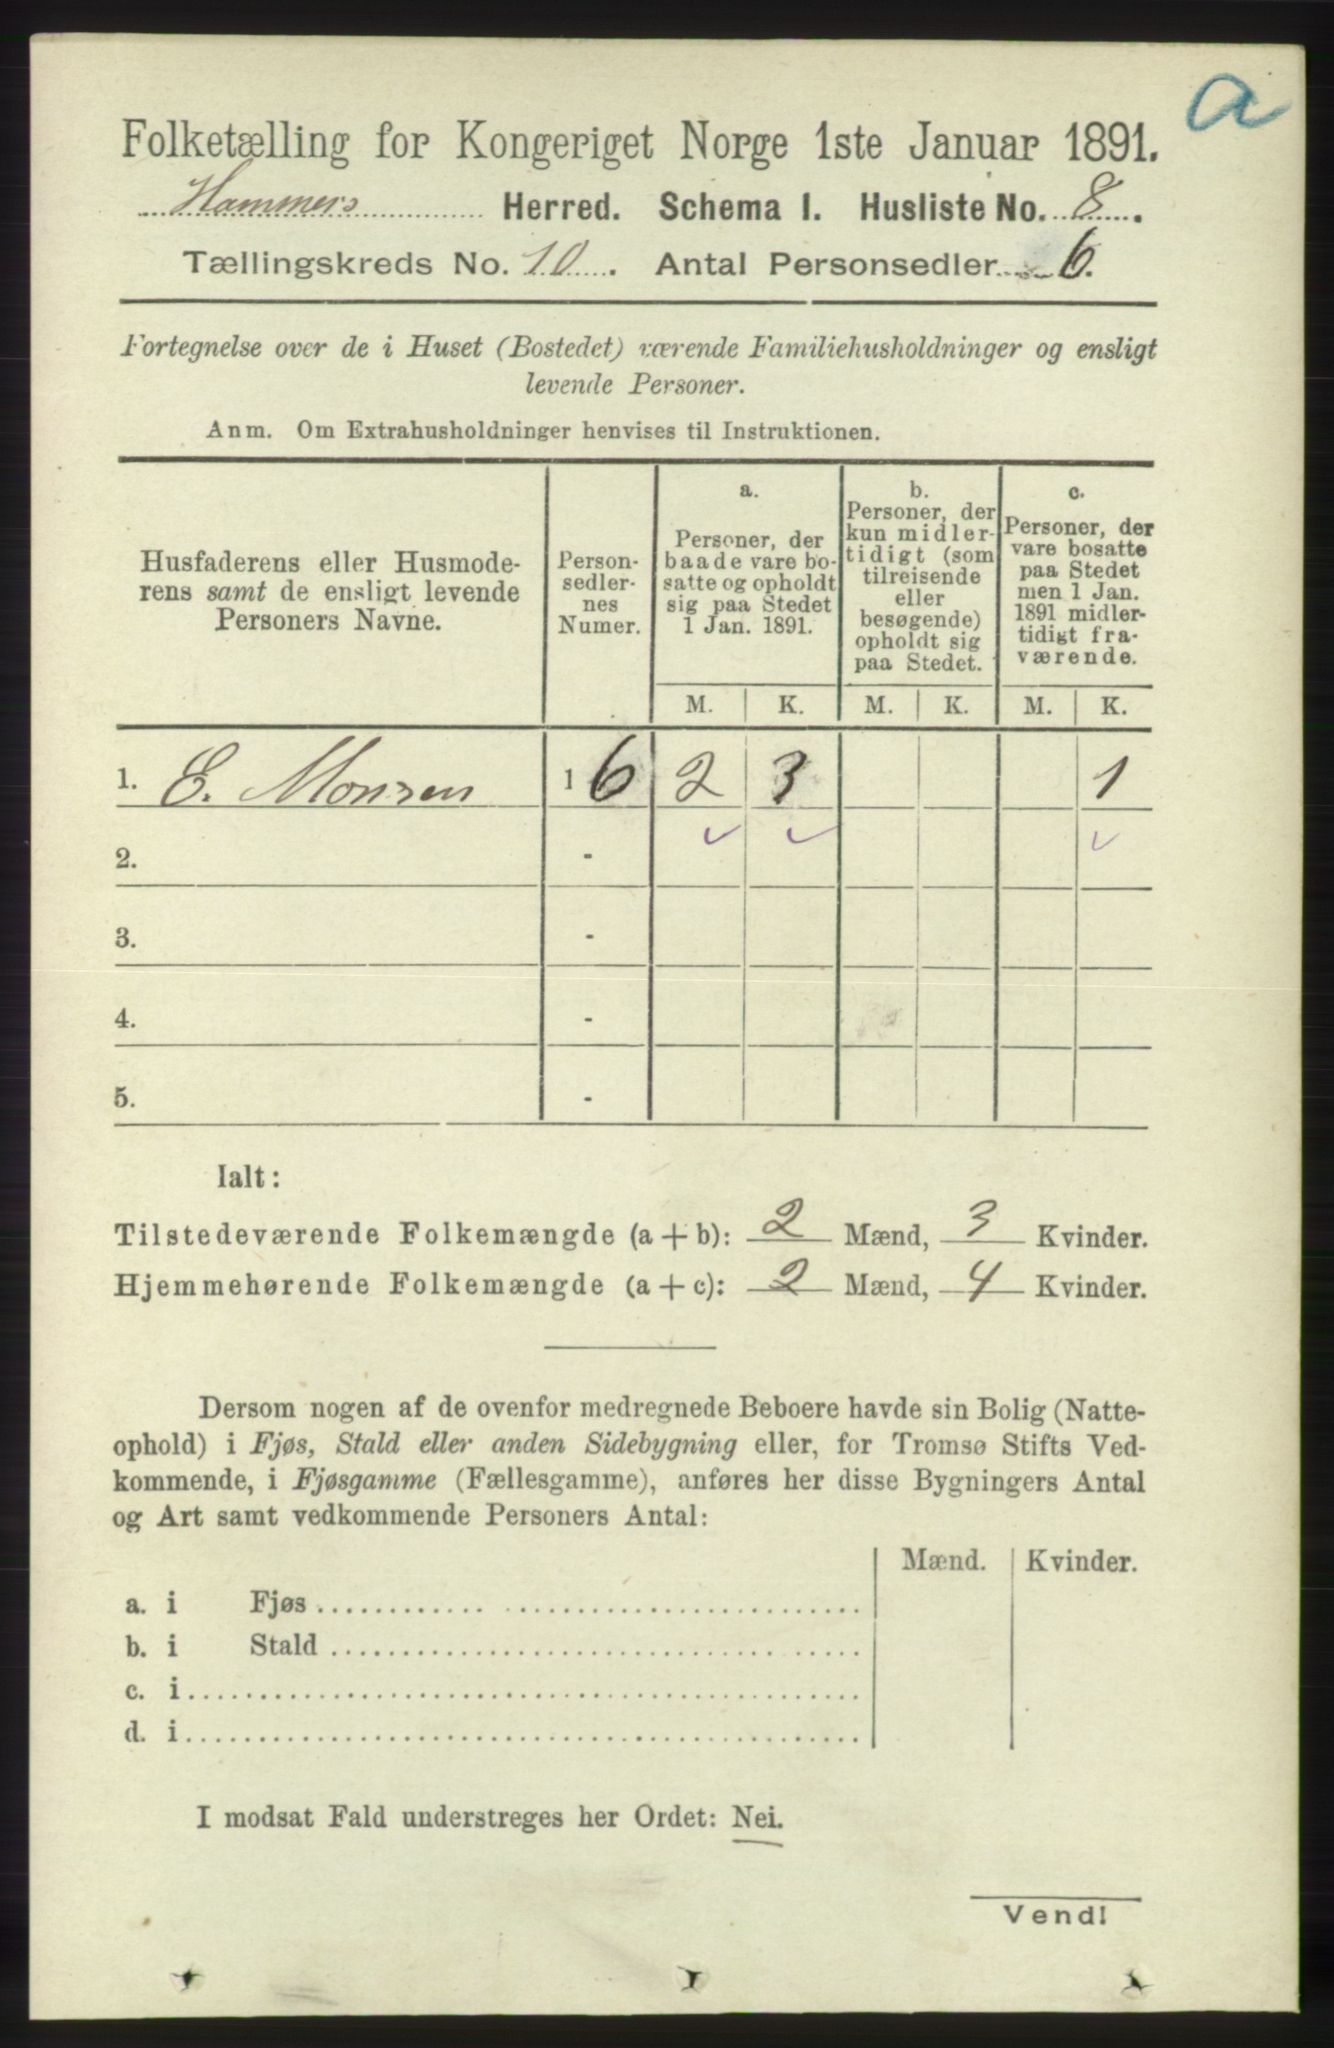 a
Folketælling for Kongeriget Norge 1ste Januar 1891.
Hammers Herred. Schema I. Husliste No. 8.
Tællingskreds No. 10. Antal Personsedler 6.
Fortegnelse over de i Huset (Bostedet) værende Familiehusholdninger og ensligt
levende Personer.
Anm. Om Extrahusholdninger henvises til Instruktionen.
Husfaderens eller Husmode-
rens samt de ensligt levende
Personers Navne.
Person-
sedler-
nes
Numer.
a.
Personer, der
baade vare bo-
satte og opholdt
sig paa Stedet
1 Jan. 1891.
b.
Personer, der
kun midler-
tidigt (som
tilreisende
eller
besøgende)
opholdt sig
paa Stedet.
c.
Personer, der
vare bosatte
paa Stedet
men 1 Jan.
1891 midler-
tidigt fra-
værende.
M. K. M. K. M. K.
1. E. Monsen 1 6 2 3 1
2. -
3. -
4. -
5. -
Ialt:
Tilstedeværende Folkemængde (a + b): 2 Mænd, 3 Kvinder.
Hjemmehørende Folkemængde (a + c): 2 Mænd, 4 Kvinder.
Dersom nogen af de ovenfor medregnede Beboere havde sin Bolig (Natte-
ophold) i Fjøs, Stald eller anden Sidebygning eller, for Tromsø Stifts Ved-
kommende, i Fjøsgamme (Fællesgamme), anføres her disse Bygningers Antal
og Art samt vedkommende Personers Antal:
Mænd. Kvinder.
a. i Fjøs
b. i Stald
c. i
d. i
I modsat Fald understreges her Ordet: Nei.
Vend!